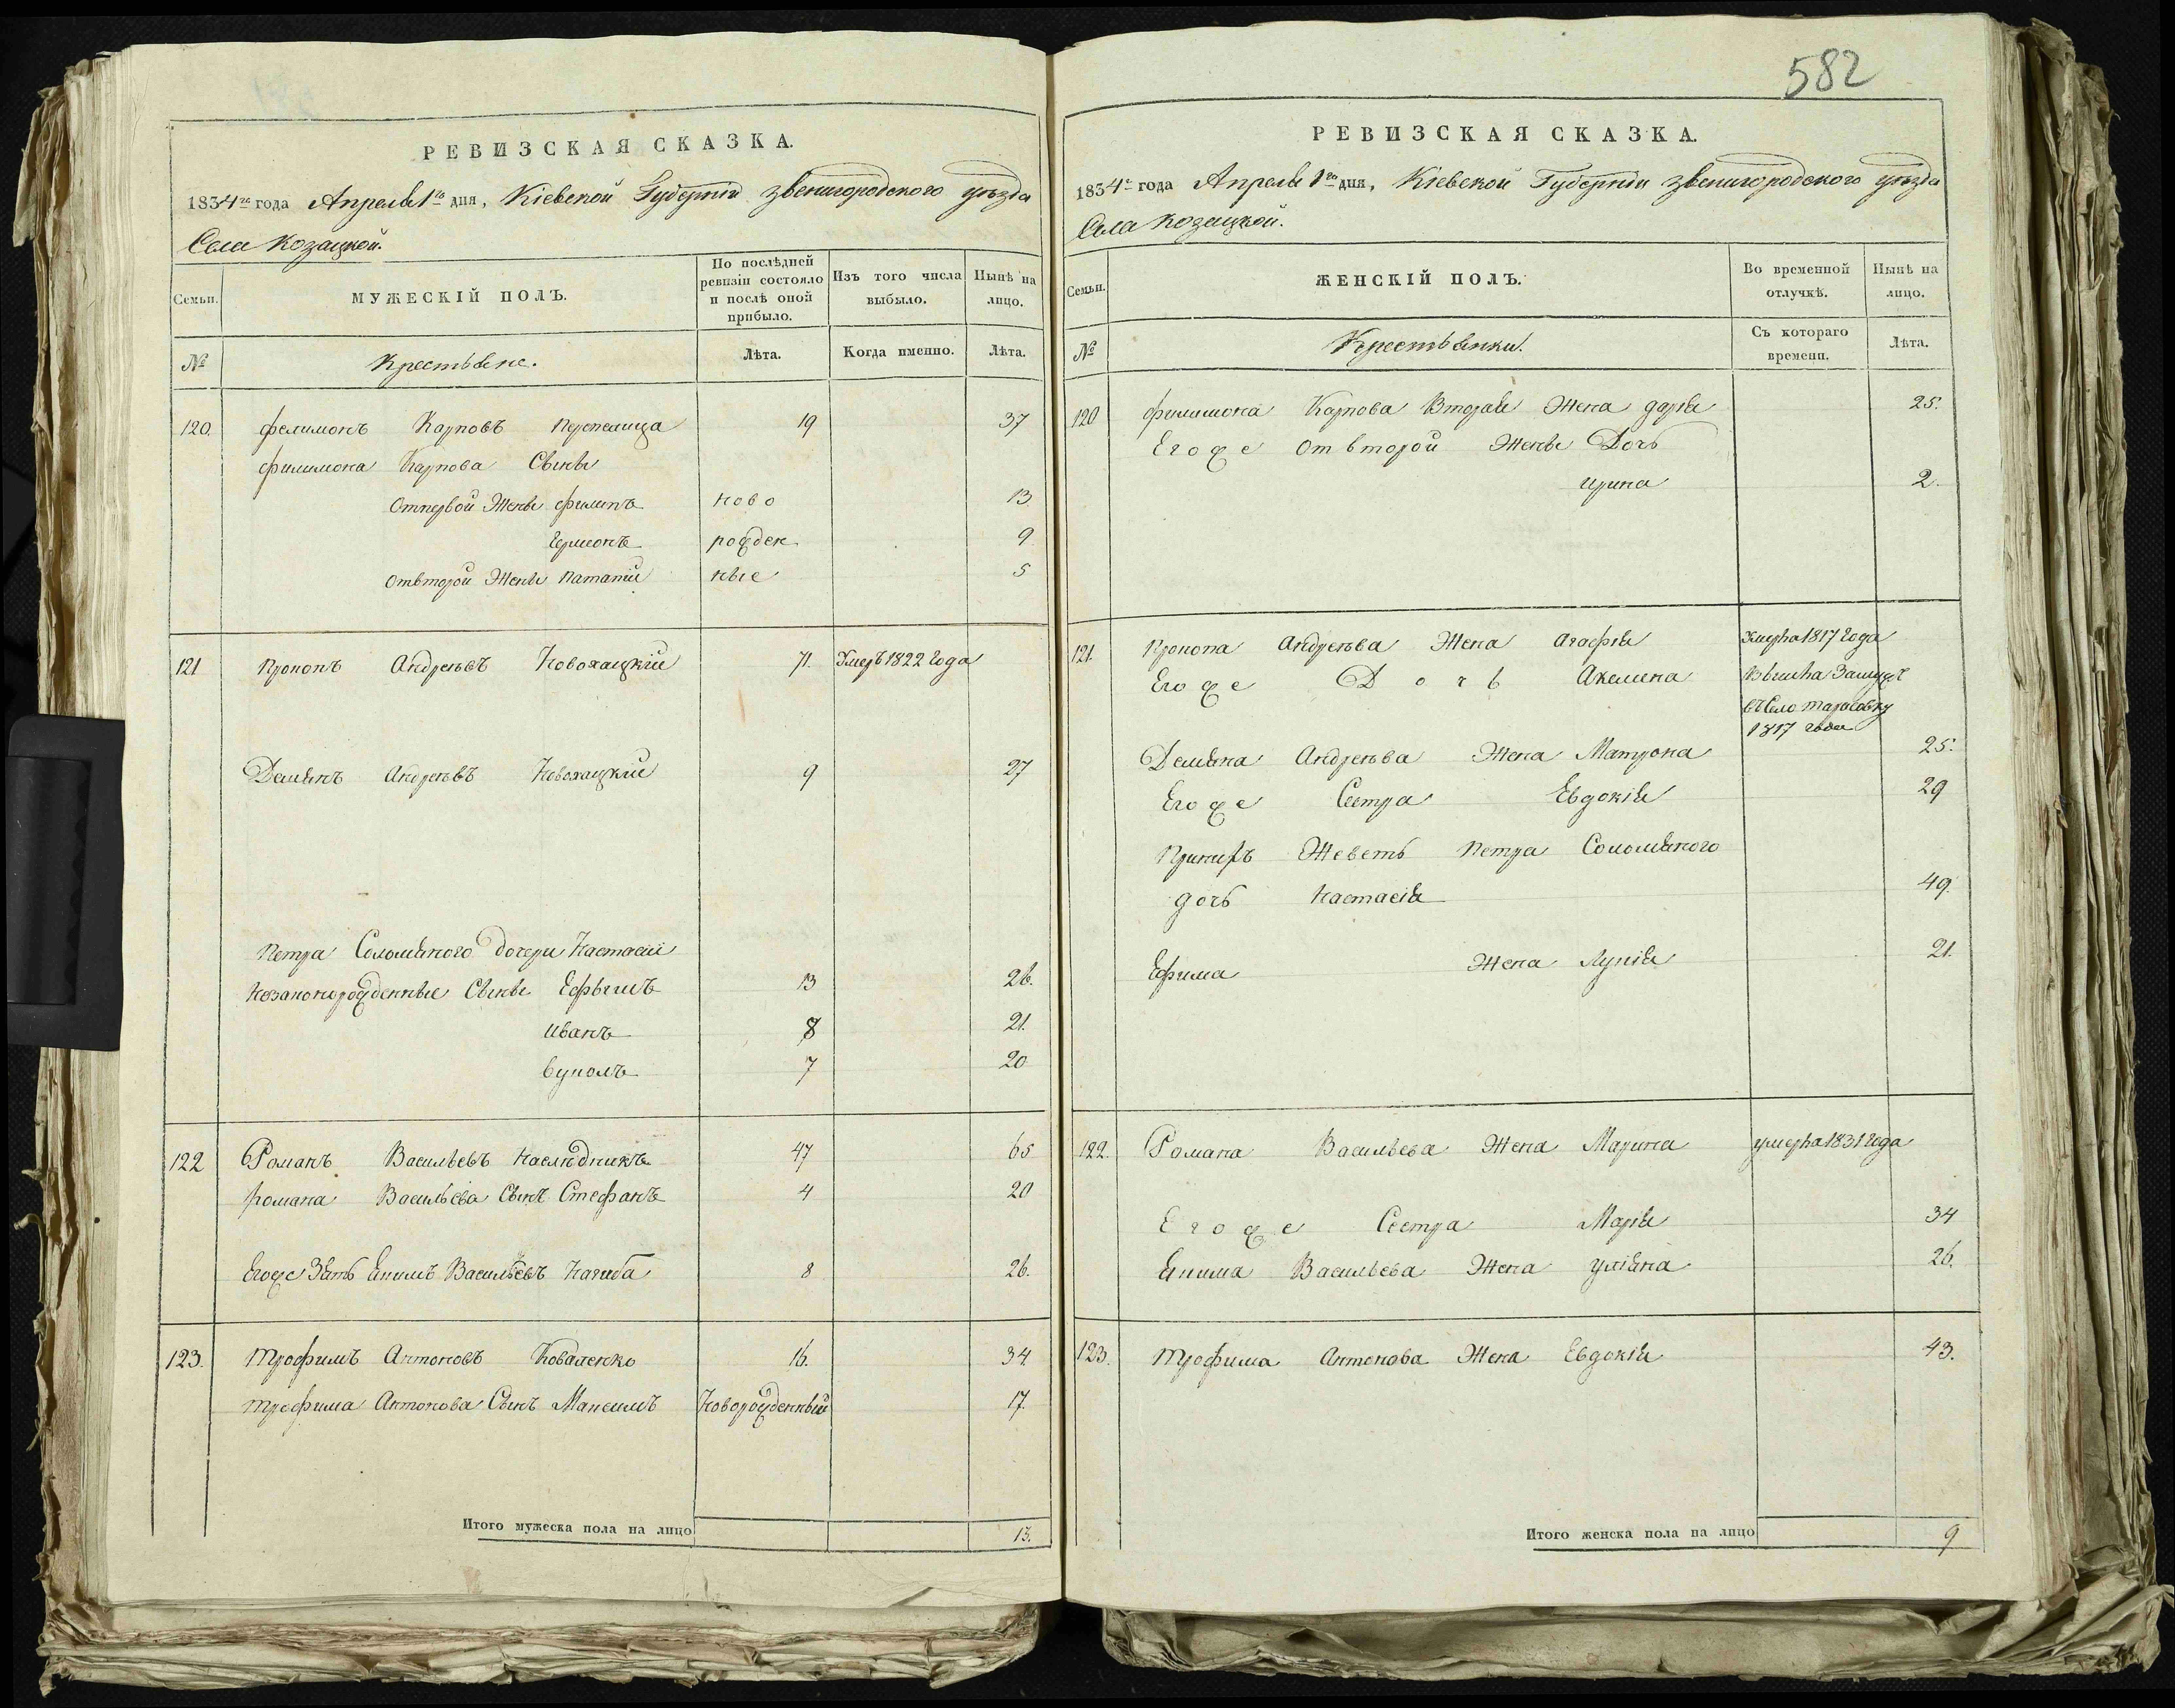 РЕВИЗСКАЯ СКАЗКА.
1834го года Апреля 1го дня, Кіевской Губерніи звенигородского уѣзда
Села Козацкой.
Семьи.
МУЖЕСКІЙ ПОЛЪ.
По послѣдней ревизіи состояло и послѣ оной прибыло.
Изъ того числа выбыло.
Нынѣ на лицо.
№
Крестьяне.
Лѣта.
Когда именно.
Лѣта.
120. филимонъ Карповъ Перепелица 19 37
филимона Карпова Сыны
Отпервой Жены филипъ ново 13
рожден 9
отвторой Жены Патапій ные 5
121 Прокопъ Андреевъ 71. Умеръ 1822 года
Демянъ Андреевъ 9 27
Петра Соломяного дочери Настасіи
Незаконорожденные Сыны Ефымъ 13 26.
Иванъ 8 21.
вуколъ 7 20
122 Романъ Васильевъ Наслѣдникъ 47 65
романа Васильева Сынъ Стефанъ 4 20
Егоже Зять Якимъ Васильевъ Нагиба 8 26.
123. Трофимъ Антоновъ Коваленко 16. 34
трофима Антонова Сынъ Максимъ Новорожденный 17.
Итого мужеска пола на лицо 13.
582
РЕВИЗСКАЯ СКАЗКА.
1834го года Апреля 1го дня, Кіевской Губерніи звенигородского уѣзда
Села Козацкой.
Семьи.
ЖЕНСКІЙ ПОЛЪ.
Во временной отлучкѣ.
Нынѣ на лицо.
№
Крестьянки.
Съ котораго времени.
Лѣта.
120 филимона Карпова Вторая Жена дарія 25.
Егоже от второй Жены Дочь
ирина 2.
121. Прокопа Андреева Жена Агафія Умерла 1817 года
Егоже Дочь Акелина Вышла Замужъ
въ Село тарасовку
1817 года
Демяна Андреева Жена Матрона 25.
Егоже Сестра Евдокія 29
Принихъ Жеветь Петра Соломяного
дочь Настасія 49.
Ефима Жена Лукія 21.
122. Романа Васильева Жена Марина умерла 1831 года
Егоже Сестра Марія 34
Якима Васильева Жена уліяна 26.
123. Трофима Антонова Жена Евдокія 43.
Итого женска пола на лицо 9